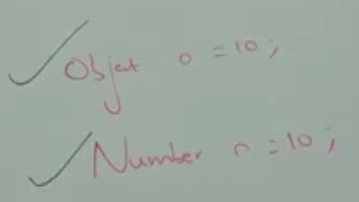 Object o = 10;
Number n = 10;